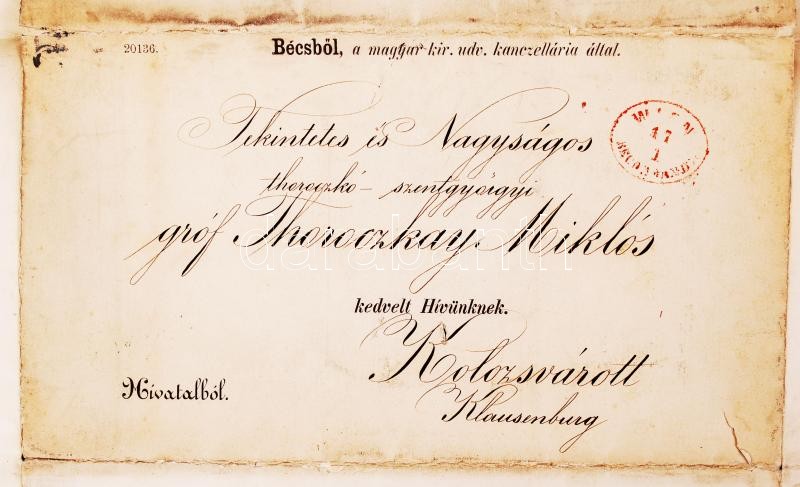 20136.
Bécsből, a magyar kir. udv. kanczellária által.
WIEN
17
1
RECOMMANDIRT
Tekintetes és Nagyságos
thoroczkó-szentgyörgyi
gróf Thoroczkay Miklós
darabanth
kedvelt Hívünknek.
Kolozsvárott
Hivatalból.
Klausenburg